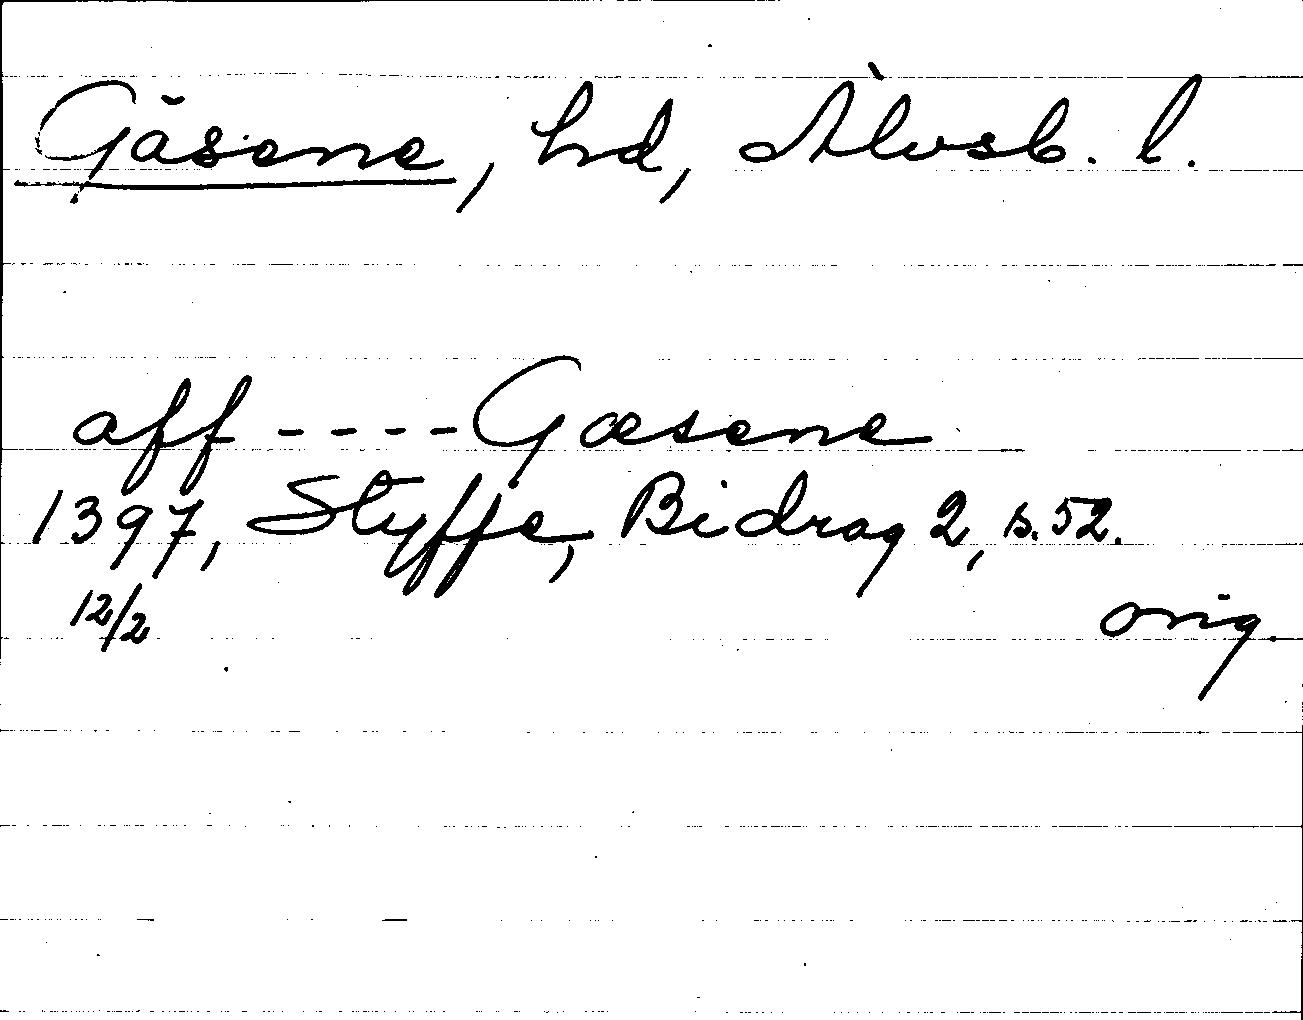 Gäsene, hd, Älvsb. l.
aff ---- Gæsene
1397, Styffe, Bidrag 2, s. 52.
12/2 orig.